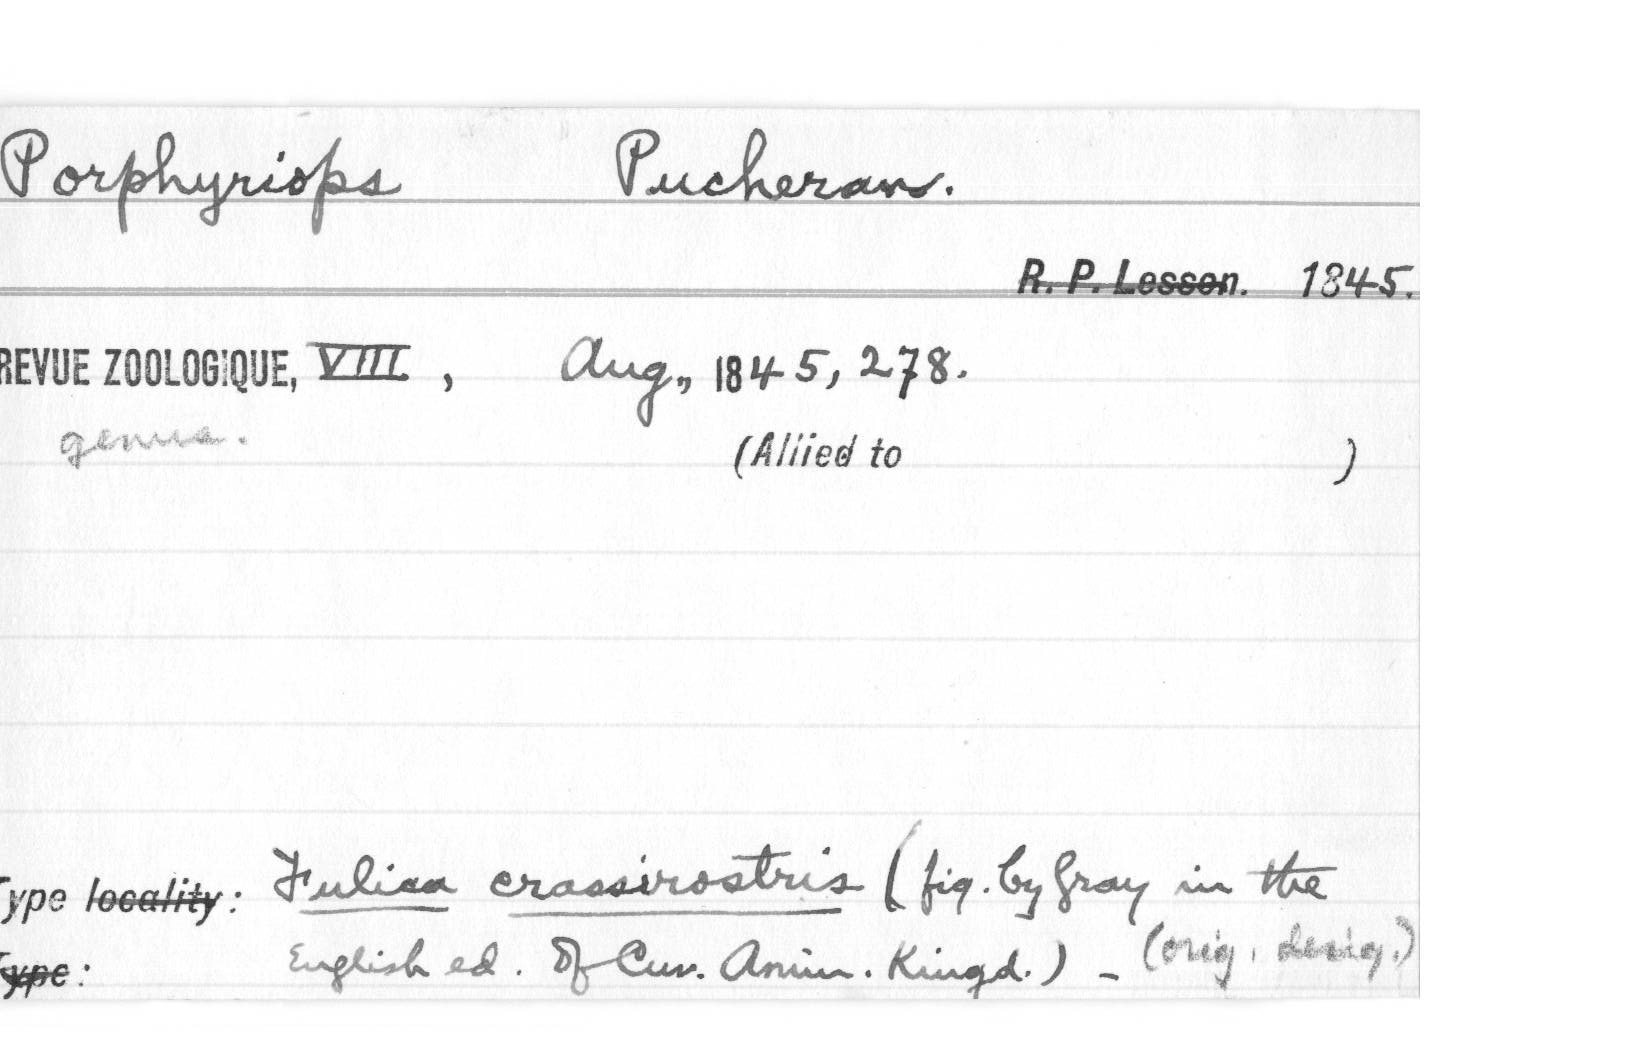 Porphyriops Pucheran.
R. P. Lesson. 1845.
REVUE ZOOLOGIQUE, VIII, Aug., 1845, 278.
genus.
(Allied to )
Type locality: Fulica crassirostris (fig. by Gray in the
Type: English ed. of Cuv. Anim. Kingd.) - (orig. desig.)